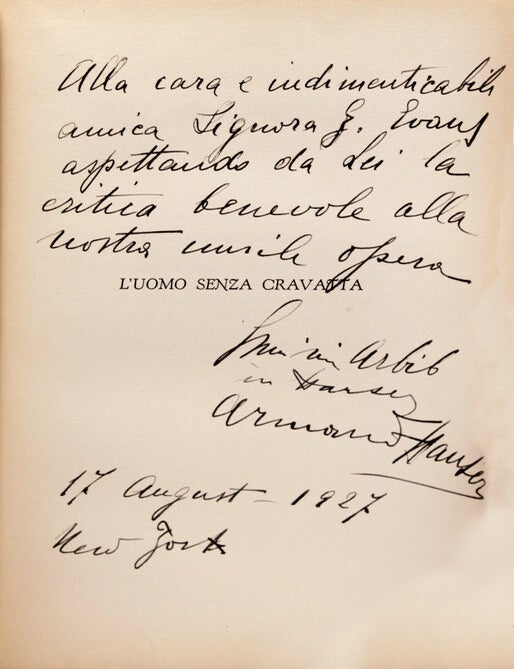 Alla cara e indimenticabile
amica Signora E. Evans
aspettando da Lei la
critica benevole alla
nostra umile opera
L'UOMO SENZA CRAVATTA
Arbib
in Hansen
Armand Hansen
17 August - 1927
New York